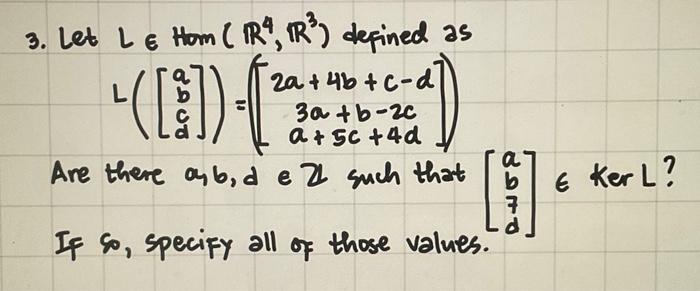 3. Let L ∈ Hom (ℝ⁴, ℝ³) defined as
L([a b c d]) = ([2a + 4b + c - d
3a + b - 2c
a + 5c + 4d])
Are there a, b, d ∈ ℤ such that [a b 7 d] ∈ Ker L?
If so, specify all of those values.